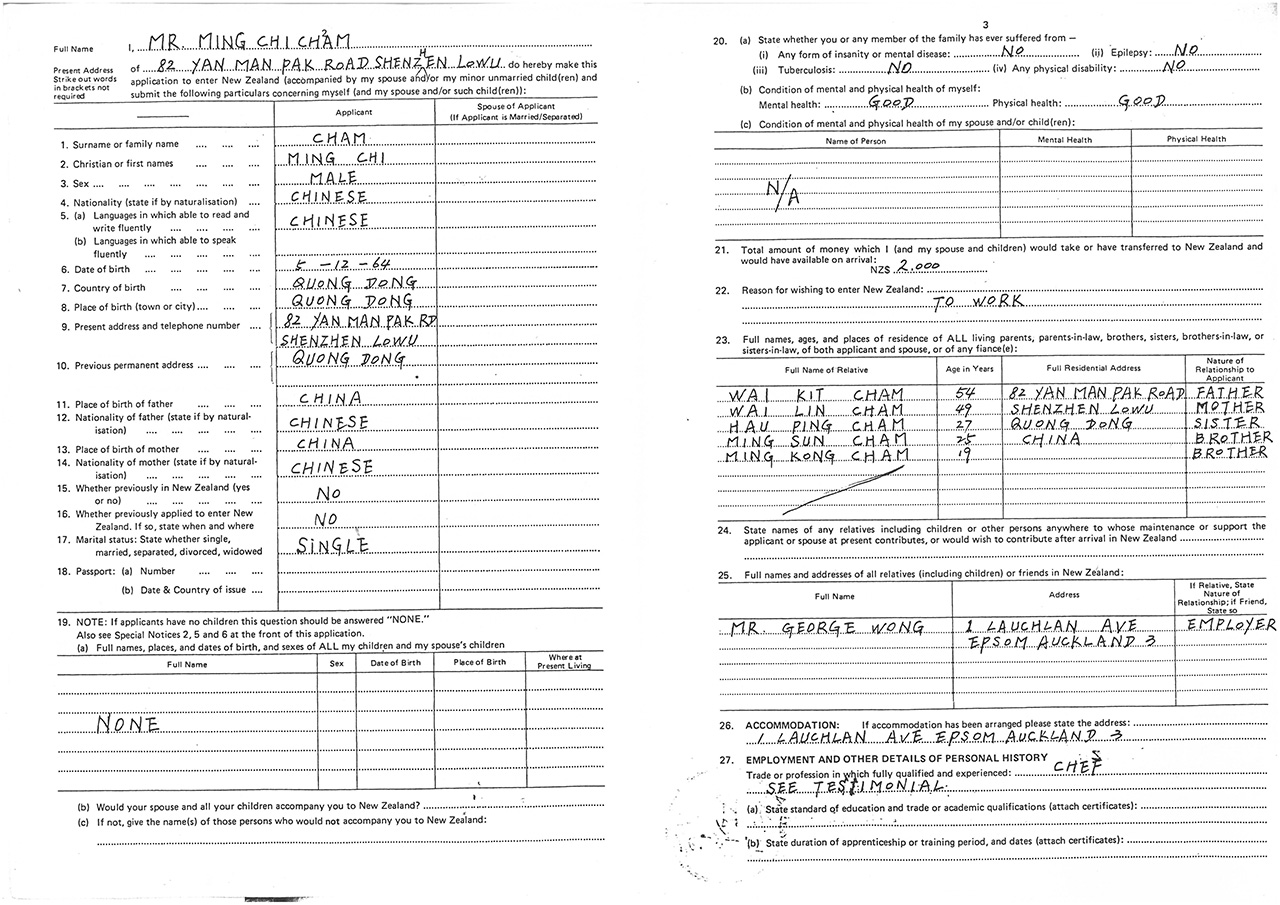 Full Name I, MR. MING CHI CHAM
Present Address of 82 YAN MAN PAK ROAD SHENZHEN LOWU do hereby make this
Strike out words in brackets not required
application to enter New Zealand (accompanied by my spouse and/or my minor unmarried child(ren) and
submit the following particulars concerning myself (and my spouse and/or such child(ren)):
Applicant
Spouse of Applicant
(If Applicant is Married/Separated)
1. Surname or family name .... .... .... CHAM
2. Christian or first names .... .... .... MING CHI
3. Sex .... .... .... .... .... .... MALE
4. Nationality (state if by naturalisation) .... CHINESE
5. (a) Languages in which able to read and
write fluently .... .... .... .... CHINESE
(b) Languages in which able to speak
fluently .... .... .... ....
6. Date of birth .... .... .... .... 5 -12 -64
7. Country of birth .... .... .... .... QUONG DONG
8. Place of birth (town or city).... .... .... QUONG DONG
9. Present address and telephone number .... 82 YAN MAN PAK RD
SHENZHEN LOWU
10. Previous permanent address .... .... .... QUONG DONG
11. Place of birth of father .... .... .... CHINA
12. Nationality of father (state if by natural-
isation) .... .... .... .... .... CHINESE
13. Place of birth of mother .... .... .... CHINA
14. Nationality of mother (state if by natural-
isation) .... .... .... .... .... CHINESE
15. Whether previously in New Zealand (yes
or no) .... .... .... .... .... NO
16. Whether previously applied to enter New
Zealand. If so, state when and where NO
17. Marital status: State whether single,
married, separated, divorced, widowed SINGLE
18. Passport: (a) Number .... .... ....
(b) Date & Country of issue ....
19. NOTE: If applicants have no children this question should be answered "NONE."
Also see Special Notices 2, 5 and 6 at the front of this application.
(a) Full names, places, and dates of birth, and sexes of ALL my children and my spouse's children
Full Name Sex Date of Birth Place of Birth Where at Present Living
NONE
(b) Would your spouse and all your children accompany you to New Zealand?
(c) If not, give the name(s) of those persons who would not accompany you to New Zealand:
3
20. (a) State whether you or any member of the family has ever suffered from —
(i) Any form of insanity or mental disease: NO (ii) Epilepsy: NO
(iii) Tuberculosis: NO (iv) Any physical disability: NO
(b) Condition of mental and physical health of myself:
Mental health: GOOD Physical health: GOOD
(c) Condition of mental and physical health of my spouse and/or child(ren):
Name of Person Mental Health Physical Health
N/A
21. Total amount of money which I (and my spouse and children) would take or have transferred to New Zealand and
would have available on arrival:
NZ$ 2,000
22. Reason for wishing to enter New Zealand:
TO WORK
23. Full names, ages, and places of residence of ALL living parents, parents-in-law, brothers, sisters, brothers-in-law, or
sisters-in-law, of both applicant and spouse, or of any fiance(e):
Full Name of Relative Age in Years Full Residential Address Nature of Relationship to Applicant
WAI KIT CHAM 54 82 YAN MAN PAK ROAD FATHER
WAI LIN CHAM 49 SHENZHEN LOWU MOTHER
HAU PING CHAM 27 QUONG DONG SISTER
MING SUN CHAM 25 CHINA BROTHER
MING KONG CHAM 19 BROTHER
24. State names of any relatives including children or other persons anywhere to whose maintenance or support the
applicant or spouse at present contributes, or would wish to contribute after arrival in New Zealand
25. Full names and addresses of all relatives (including children) or friends in New Zealand:
Full Name Address If Relative, State Nature of Relationship; if Friend, State so
MR. GEORGE WONG 1 LAUCHLAN AVE EMPLOYER
EPSOM AUCKLAND 3
26. ACCOMMODATION: If accommodation has been arranged please state the address:
1 LAUCHLAN AVE EPSOM AUCKLAND 3
27. EMPLOYMENT AND OTHER DETAILS OF PERSONAL HISTORY
Trade or profession in which fully qualified and experienced: CHEF
SEE TESTIMONIAL.
(a) State standard of education and trade or academic qualifications (attach certificates):
(b) State duration of apprenticeship or training period, and dates (attach certificates):